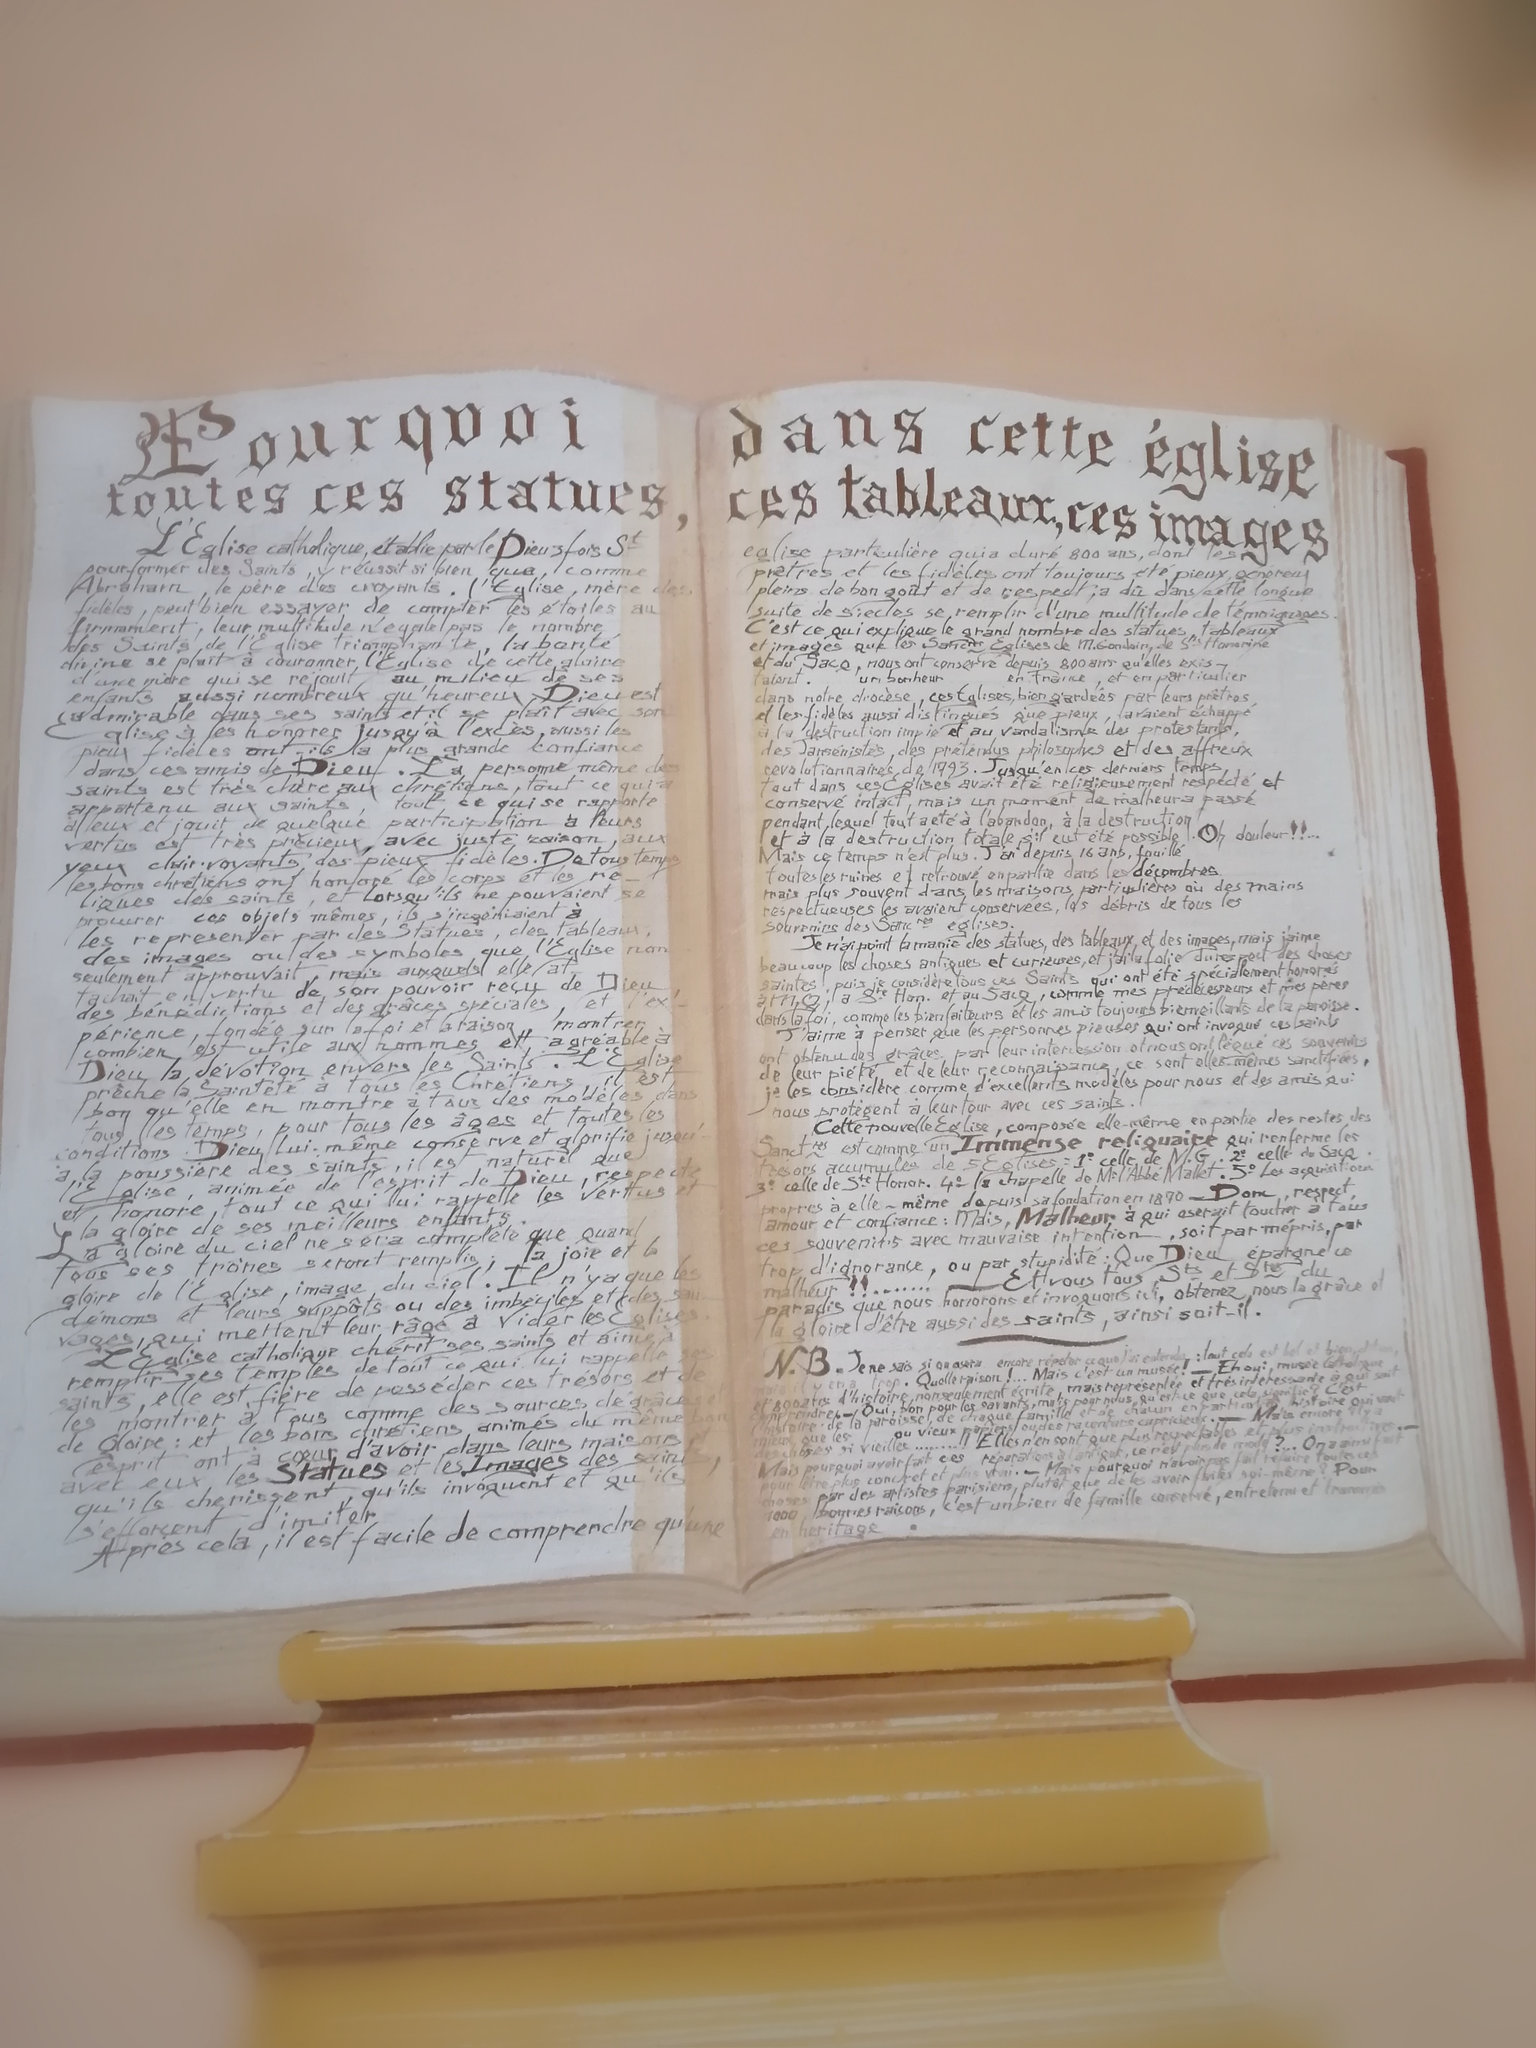 Pourquoi
toutes ces statues,
L'Eglise catholique, établie par le Dieu 3 fois St
pour former des Saints, y réussit si bien que, comme
Abraham, le père des croyants. l'Eglise, mère des
fidèles, peut bien essayer de compter les étoiles au
firmament, leur multitude n'égale pas le nombre
des Saints, de l'Eglise triomphante, la bonté
divine se plait à couronner, l'Eglise de cette gloire
d'une mère qui se rejouit au milieu de ses
enfants aussi nombreux qu'heureux, Dieu est
admirable dans ses saints et il se plait avec son
Eglise à les honorer jusqu'à l'excès, aussi les
pieux fidèles ont-ils la plus grande confiance
dans ces amis de Dieu. La personne même des
saints est très chère aux chrétiens, tout ce qui a
appartenu aux saints, tout ce qui se rapporte
à leux et jouit de quelque participation à leurs
vertus est très précieux, avec juste raison, aux
yeux clair-voyants des pieux fidèles. De tous temps
les bons chrétiens ont honoré les corps et les re-
liques des saints, et lorsqu'ils ne pouvaient se
procurer ces objets mêmes, ils s'ingéniaient à
les representer par des Statues, des tableaux,
des images ou des symboles que l'Eglise non
seulement approuvait, mais auxquels elle at-
tachait en vertu de son pouvoir reçu de Dieu,
des bénédictions et des grâces spéciales, et l'ex-
périence, fondée sur la foi et la raison, montrer
combien est utile aux hommes et agréable à
Dieu la dévotion envers les Saints. L'Eglise
prêche la Sainteté à tous les Chretiens, il est
bon qu'elle en montre à tous des modèles dans
tous les temps, pour tous les âges et toutes les
conditions. Dieu lui-même conserve et glorifie jusqu'-
à la poussière des saints, il est naturel que
l'Eglise, animée de l'esprit de Dieu, respecte
et honore, tout ce qui lui rappelle les vertus et
la gloire de ses meilleurs enfants.
La gloire du ciel ne sera complète que quand
tous ses trônes seront remplis; la joie et la
gloire de l'Eglise, image du ciel. Il n'y a que les
démons et leurs suppôts ou des imbéciles et des sau-
vages, qui mettent leur rage à vider les Eglises.
L'Eglise catholique chérit ses saints et aime à
remplir ses temples de tout ce qui lui rappelle ses
saints, elle est fière de posséder ces trésors et de
les montrer à tous comme des sources de grâces et
de gloire: et les bons chretiens animés du même bon
esprit ont à cœur d'avoir dans leurs maisons et
avec eux les Statues et les Images des saints,
qu'ils cherissent, qu'ils invoquent et qu'ils
s'efforcent d'imiter.
Après cela, il est facile de comprendre qu'une
dans cette église
ces tableaux, ces images
eglise particulière qui a duré 800 ans, dont les
prêtres et les fidèles ont toujours été pieux, généreux
pleins de bon goût et de respect, a dû dans cette longue
suite de siecles se remplir d'une multitude de témoignages.
C'est ce qui explique le grand nombre des statues, tableaux
et images que les Sanctres Eglises de M. Gondoin, de Ste Honorine
et du Sacq, nous ont conservé depuis 800 ans qu'elles exis-
taient. un bonheur en France, et en particulier
dans notre diocèse, ces Eglises, bien gardées par leurs prêtres
et les fidèles aussi distingués que pieux, avaient échappé
à la destruction impie et au vandalisme des protestants,
des Jansénistes, des prétendus philosophes et des affreux
revolutionnaires de 1793. Jusqu'en ces derniers temps,
tout dans ces Eglises avait été religieusement respecté et
conservé intact, mais un moment de malheur a passé
pendant lequel tout a été à l'abandon, à la destruction
et à la destruction totale s'il eut été possible! Oh douleur!!...
Mais ce temps n'est plus. J'ai depuis 16 ans, fouillé
toutes les ruines et retrouvé en partie dans les décombres
mais plus souvent dans les maisons particulières où des mains
respectueuses les avaient conservées, les débris de tous les
souvenirs des Sanctres eglises.
Je n'ai point la manie des statues, des tableaux, et des images, mais j'aime
beaucoup les choses antiques et curieuses, et j'ai la folie du respect des choses
saintes, puis je considère tous ces Saints qui ont été spécialement honorés
à M.G., à Ste Hon. et au Sacq, comme mes prédécesseurs et mes pères
dans la foi, comme les bienfaiteurs et les amis toujours bienveillants de la paroisse.
J'aime à penser que les personnes pieuses qui ont invoqué ces saints
ont obtenu des grâces par leur intercession et nous ont légué ces souvenirs
de leur piété et de leur reconnaissance, ce sont elles-mêmes sanctifiées,
je les considère comme d'excellents modèles pour nous et des amis qui
nous protègent à leur tour avec ces saints.
Cette nouvelle Eglise, composée elle-même en partie des restes, des
Sanctres est comme un Immense reliquaire qui renferme les
tresors accumulés de 5 Eglises: 1º celle de M.G. 2º celle du Sacq.
3º celle de Ste Honor. 4º la chapelle de Mr l'Abbé Mallet. 5º Les acquisitions
propres à elle-même depuis sa fondation en 1890 - Donc, respect,
amour et confiance: Mais, Malheur à qui oserait toucher à tous
ces souvenirs avec mauvaise intention, soit par mépris, par
trop d'ignorance, ou par stupidité: Que Dieu épargne ce
malheur!!........ — Et vous tous, Sts et Stes du
paradis que nous honorons et invoquons ici, obtenez nous la grâce et
la gloire d'être aussi des saints, ainsi soit-il.
N.B. Je ne sais si on osera encore répéter ce que j'ai entendu: tout cela est bel et bien,
mais il y en a trop. Quelle raison!... Mais c'est un musée! — Eh oui, musée catholique
et 800 ans d'histoire, non seulement écrite, mais représentée et très intéressante à qui sait
comprendre. — Oui, bon pour les savants, mais pour nous, qu'est-ce que cela signifie? C'est
l'histoire de la paroisse, de chaque famille et de chacun en particulier, histoire qui vaut
mieux que les ou vieux parisiens ou des raconteurs capricieux. — Mais encore il y a
des choses si vieilles........!! Elles n'en sont que plus respectables et plus instructives. —
Mais pourquoi avoir fait ces réparations à l'antique, ce n'est plus de mode?... On a ainsi fait
pour être plus concret et plus vrai. — Mais pourquoi n'avoir pas fait refaire toutes ces
choses par des artistes parisiens, plutôt que de les avoir faites soi-même? Pour
1000 bonnes raisons, c'est un bien de famille conservé, entretenu et transmis
en heritage.